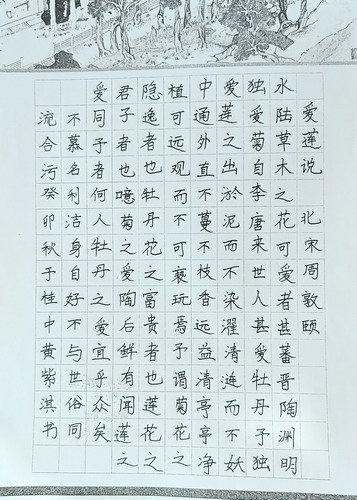 爱莲说 北宋周敦颐
水陆草木之花可爱者甚蕃晋陶渊明
独爱菊自李唐来世人甚爱牡丹予独
爱莲之出淤泥而不染濯清涟而不妖
中通外直不蔓不枝香远益清亭亭净
植可远观而不可亵玩焉予谓菊花之
隐逸者也牡丹花之富贵者也莲花之
君子者也噫菊之爱陶后鲜有闻莲之
爱同予者何人牡丹之爱宜乎众矣
不慕名利洁身自好不与世俗同
流合污癸卯秋于桂中黄紫淇书